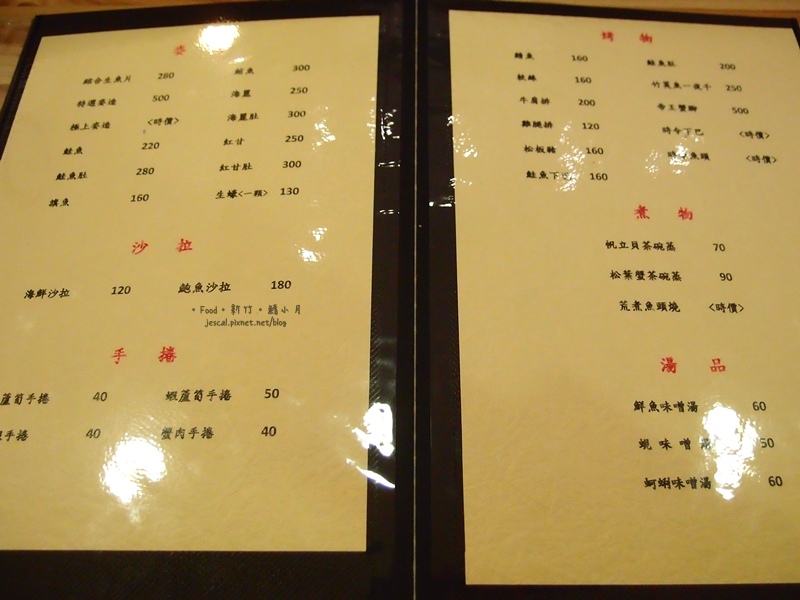 姿
綜合生魚片 280
特選姿造 500
極上姿造 <時價>
鮭魚 220
鮭魚肚 280
旗魚 160
鮪魚 300
海鱺 250
海鱺肚 300
紅甘 250
紅甘肚 300
生蠔<一顆> 130
沙拉
海鮮沙拉 120
鮑魚沙拉 180
Food 新竹 鱔小月
jescal.pixnet.net/blog
手捲
蘆筍手捲 40
蝦蘆筍手捲 50
手捲 40
蟹肉手捲 40
烤物
鯖魚 160
軟絲 160
牛肩排 200
雞腿排 120
松板豬 160
鮭魚下 160
鮭魚肚 200
竹筴魚一夜干 250
帝王蟹腳 500
時令下巴 <時價>
時 魚頭 <時價>
煮物
帆立貝茶碗蒸 70
松葉蟹茶碗蒸 90
荒煮魚頭燒 <時價>
湯品
鮮魚味噌湯 60
蜆味噌 50
蚵蜊味噌湯 60